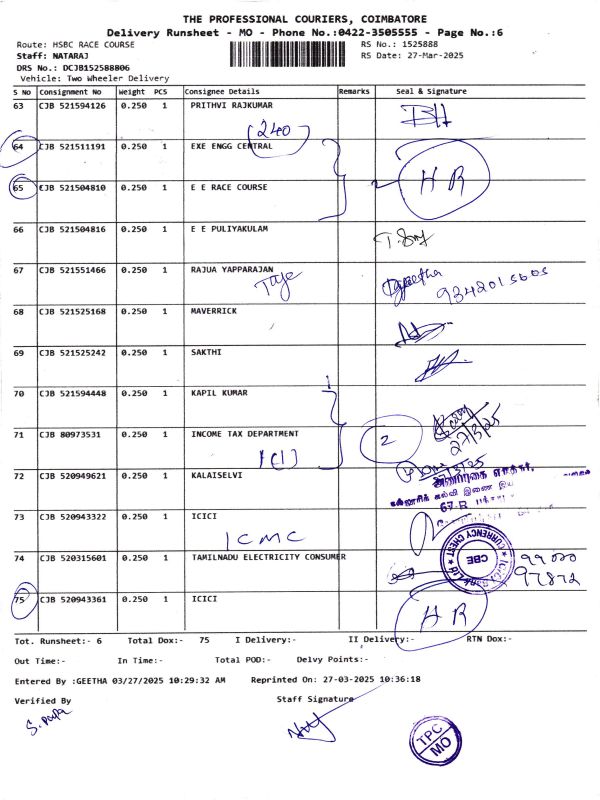 THE PROFESSIONAL COURIERS, COIMBATORE
Delivery Runsheet - MO - Phone No.:0422-3505555 - Page No.:6
Route: HSBC RACE COURSE
RS No.: 1525888
Staff: NATARAJ
RS Date: 27-Mar-2025
DRS No.: DCJB152588806
Vehicle: Two Wheeler Delivery
S No Consignment No Weight PCS Consignee Details Remarks Seal & Signature
63 CJB 521594126 0.250 1 PRITHVI RAJKUMAR
BH
(240)
64 CJB 521511191 0.250 1 EXE ENGG CENTRAL
HR
65 CJB 521504810 0.250 1 E E RACE COURSE
66 CJB 521504816 0.250 1 E E PULIYAKULAM
67 CJB 521551466 0.250 1 RAJUA YAPPARAJAN
9342015605
68 CJB 521525168 0.250 1 MAVERRICK
69 CJB 521525242 0.250 1 SAKTHI
70 CJB 521594448 0.250 1 KAPIL KUMAR
27/3/25
71 CJB 80973531 0.250 1 INCOME TAX DEPARTMENT
2
1(1)
72 CJB 520949621 0.250 1 KALAISELVI
73 CJB 520943322 0.250 1 ICICI
ICMC
74 CJB 520315601 0.250 1 TAMILNADU ELECTRICITY CONSUMER
CURRENCY CHEST
CBE
ICICI BANK LTD
97872
75 CJB 520943361 0.250 1 ICICI
HR
Tot. Runsheet:- 6 Total Dox:- 75 I Delivery:- II Delivery:- RTN Dox:-
Out Time:- In Time:- Total POD:- Delvy Points:-
Entered By :GEETHA 03/27/2025 10:29:32 AM Reprinted On: 27-03-2025 10:36:18
Verified By Staff Signature
TPC
MO